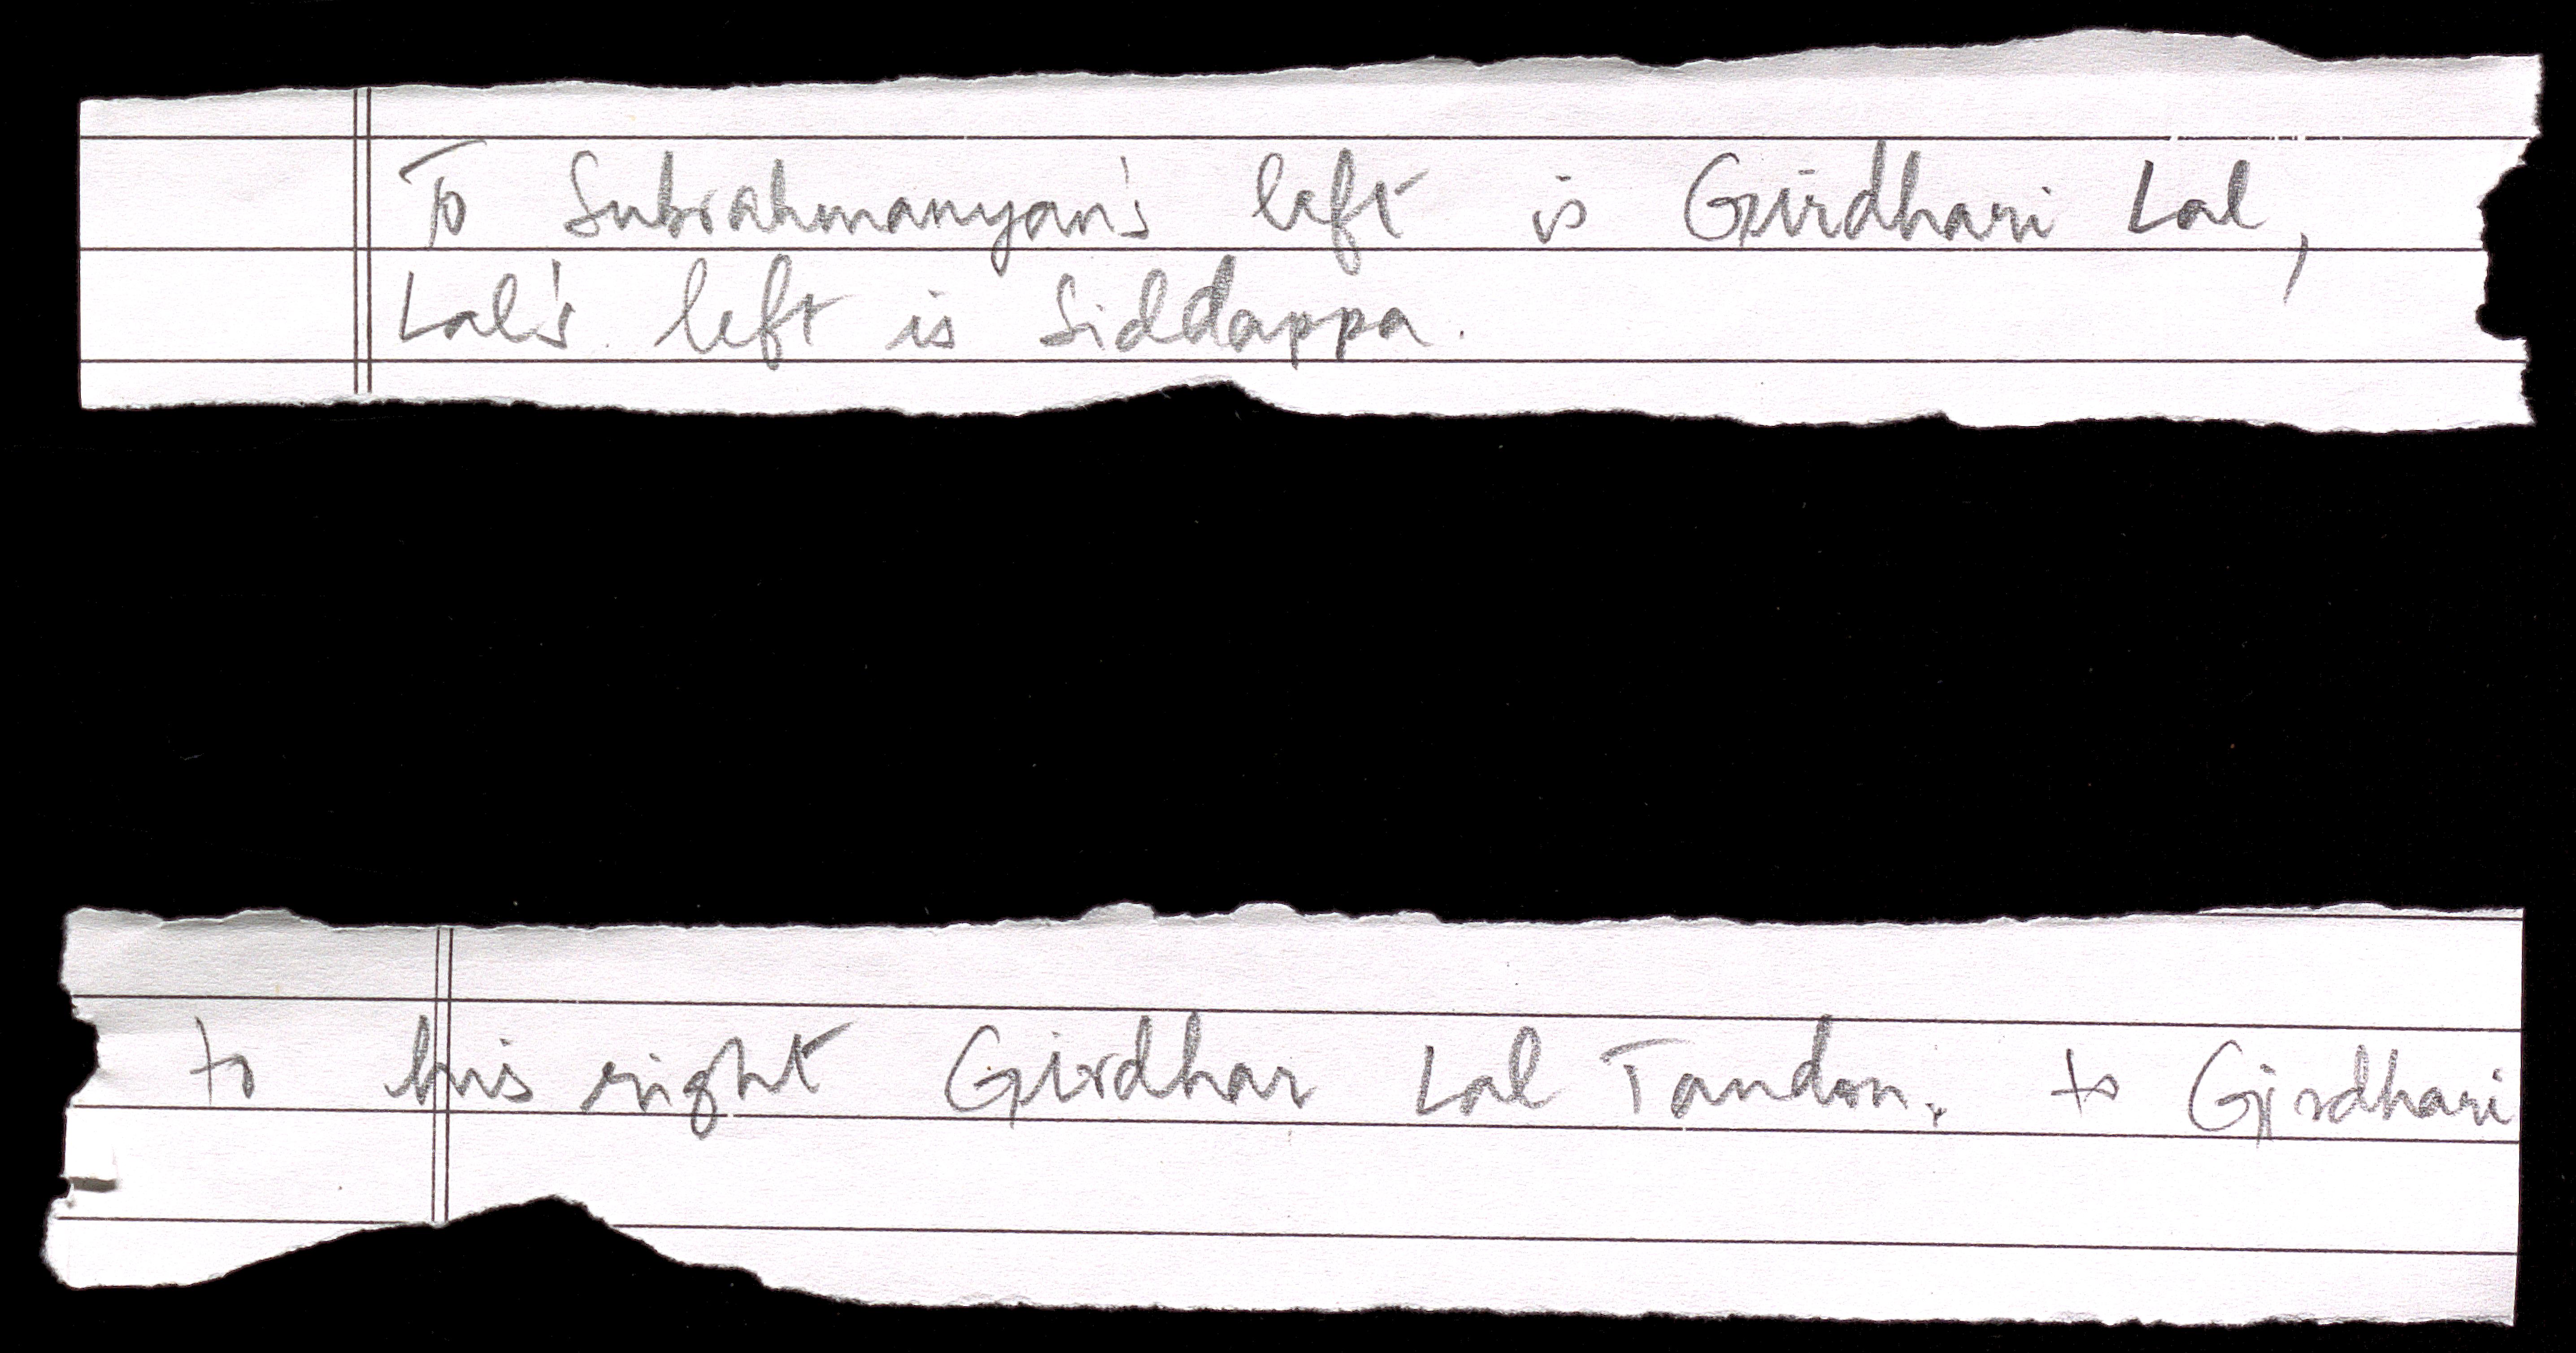 To Subrahmanyan's left is Girdhari Lal,
Lal's left is Siddappa.
to his right Girdhar Lal Tandon. to Girdhari